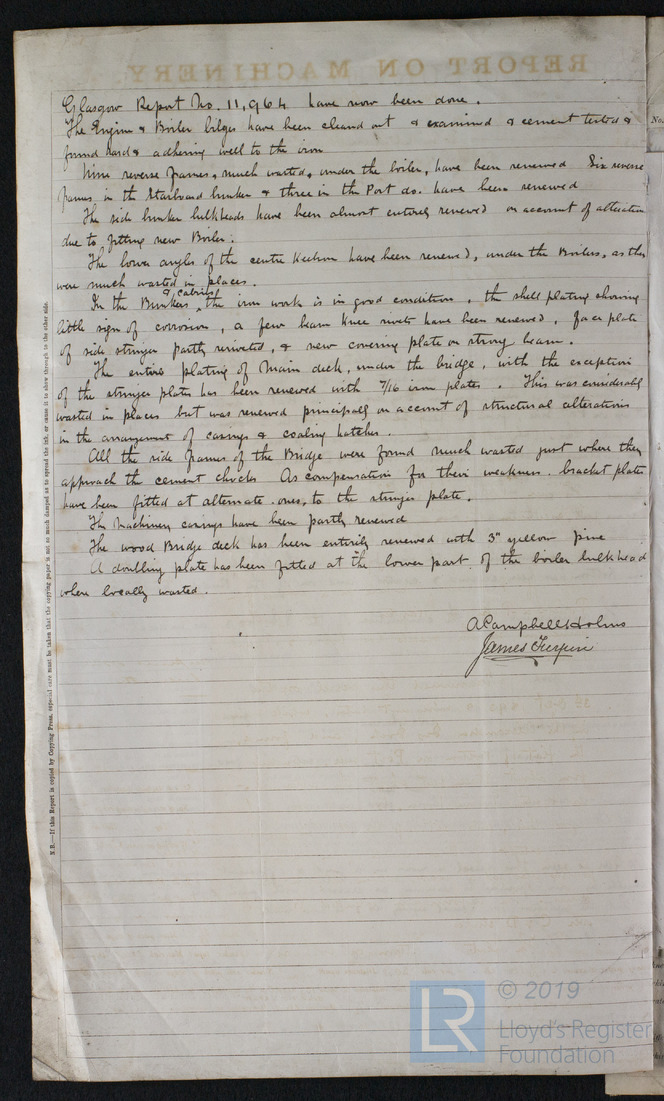 REPORT ON MACHINERY.
Glasgow Report No. 11,964 have now been done.
The Engine & Boiler bilges have been cleaned out & examined & cement tested &
found hard & adhering well to the iron
Nine reverse frames, much wasted, under the boiler, have been renewed Six reverse
frames in the Starboard bunker & three in the Port do. have been renewed
The side bunker bulkheads have been almost entirely renewed on account of alteration
due to fitting new Boiler.
The lower angles of the centre keelson have been renewed, under the Boilers, as they
were much wasted in places.
In the Bunkers & cabins, the iron work is in good condition, the shell plating showing
little sign of corrosion, a few beam knee rivets have been renewed, face plate
of side stringer partly reriveted, & new covering plate on strong beam.
The entire plating of Main deck, under the bridge, with the exception
of the stringer plates has been renewed with 7/16 iron plates. This was considerably
wasted in places but was renewed principally on account of structural alterations
in the arrangement of casings & coaling hatches.
All the side frames of the Bridge were found much wasted just where they
approach the cement chocks As compensation for their weakness bracket plates
have been fitted at alternate ones, to the stringer plate.
The Machinery casings have been partly renewed
The wood Bridge deck has been entirely renewed with 3" yellow pine
A doubling plate has been fitted at the lower part of the boiler bulkhead
where locally wasted.
A Campbell Holms
James Turpin
N.B.—If this Report is copied by Copying Press, especial care must be taken that the copying paper is not so much damped as to spread the ink, or cause it to show through to the other side.
No.
LR
© 2019
Lloyd's Register
Foundation